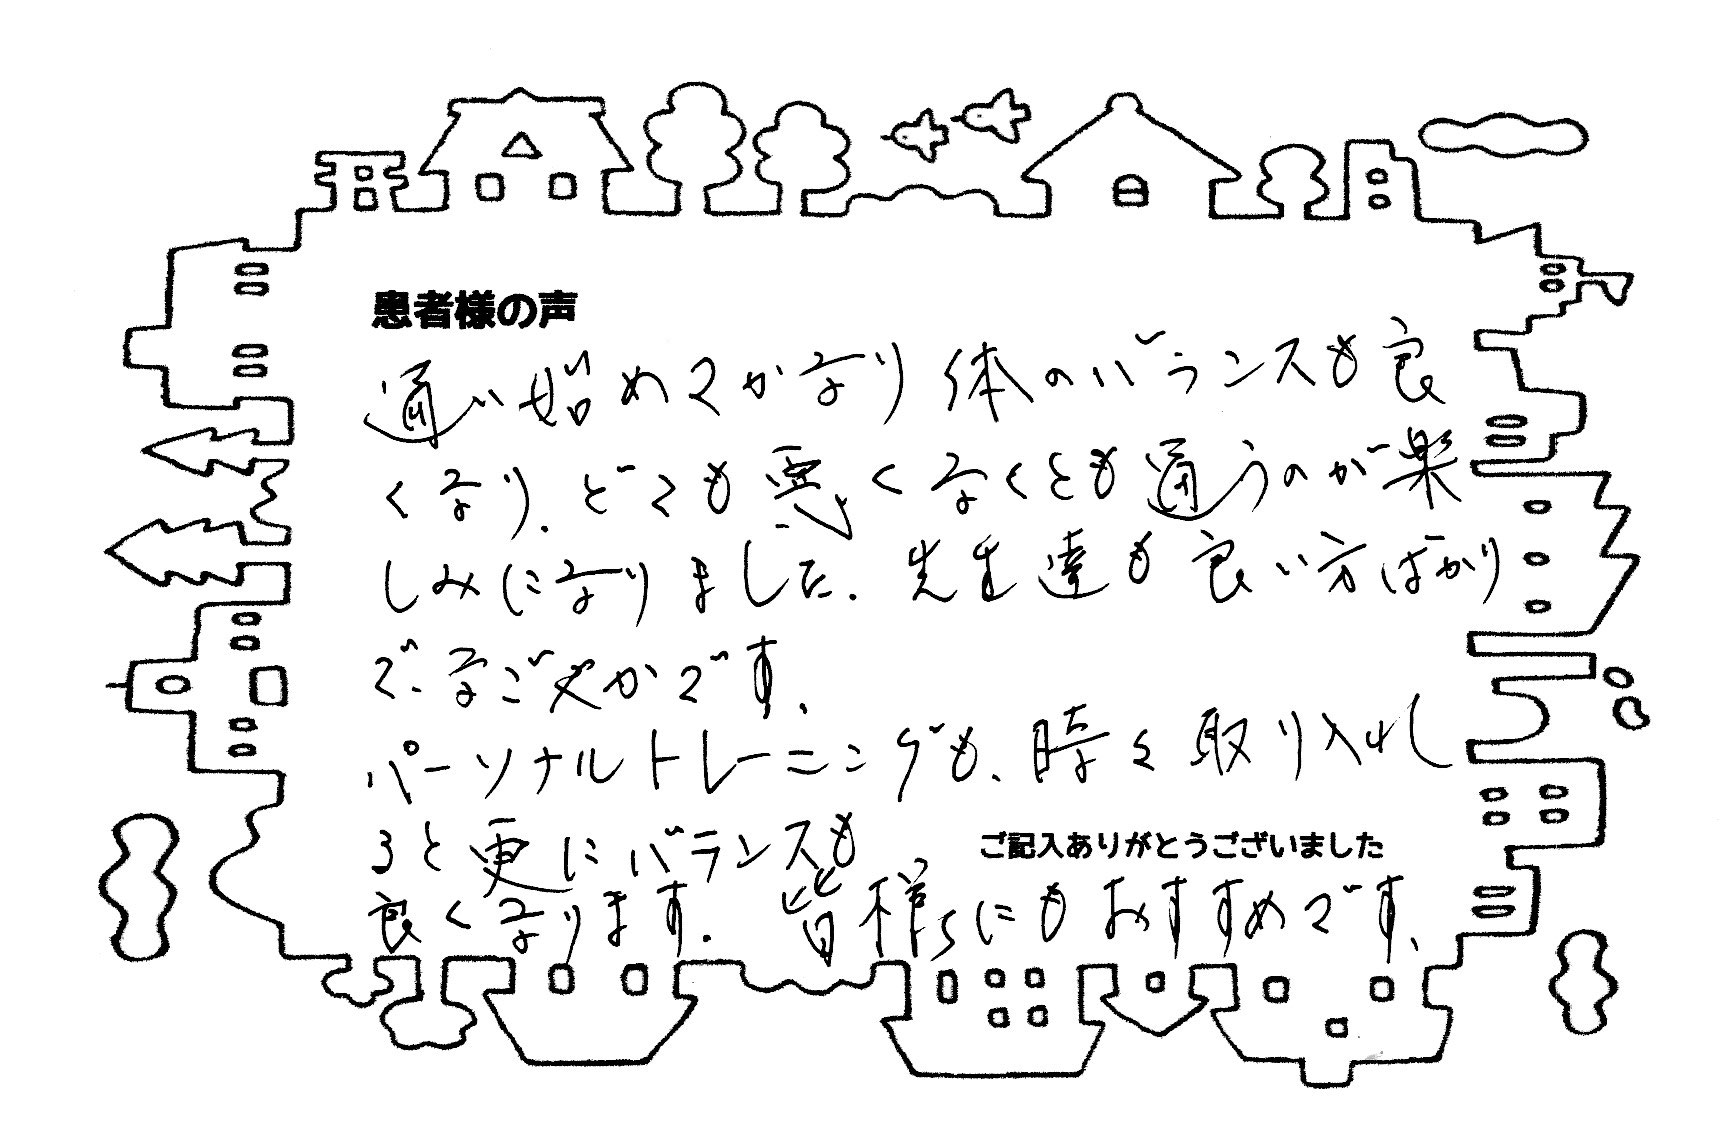 患者様の声
通い始めてかなり体のバランスも良
くなり、どこも悪くなくとも通うのが楽
しみになりました。先生達も良い方ばかり
で、なごやかです。
パーソナルトレーニングも、時々取り入れ
ると更にバランスも
ご記入ありがとうございました
良くなります。皆様にもおすすめです。